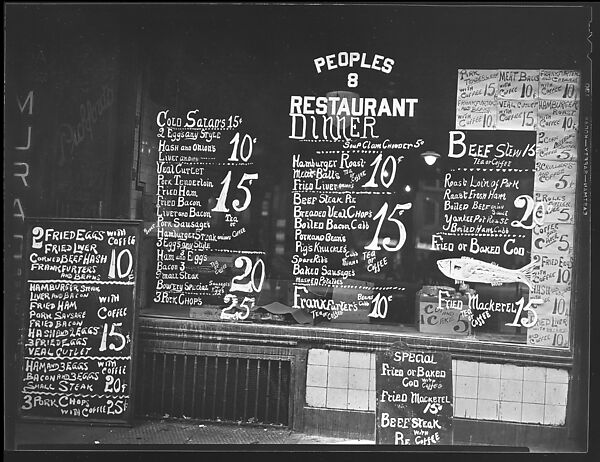 PEOPLES
8
RESTAURANT
DINNER
Soup Clam Chowder 5¢
Hamburger Roast
Meat Balls
Fried Liver
TEA or COFFEE
10¢
Beef Steak Pie
Breaded Veal Chops
Boiled Bacon Cabb
Pork and Beans
Pigs Knuckles
Spare Ribs
Baked Sausages
Mashed Potatoes
15¢
TEA or COFFEE
Franxfurter's Beans Cabb 10¢
Tea or Coffee
Cold Salads 15¢
2 Eggs any Style
Hash and Onions
Liver and Onions
10¢
Veal Cutlet
Pork Tenderloin
Fried Ham
Fried Bacon
Liver and Bacon
Pork Sausages
Hamburger Steak Onions
3 Eggs any Style
15¢
TEA or COFFEE
Ham and Eggs
Bacon 3
Small Steak
Bowery Special
20¢
3 Pork Chops
25¢
2 FRIED EGGS
FRIED LIVER
CORNED BEEF HASH
FRANKFURTERS
AND BEANS
WITH COFFEE
10¢
HAMBURGER STEAK
LIVER AND BACON
FRIED HAM
PORK SAUSAGE
FRIED BACON
HASH AND 2 EGGS
3 FRIED EGGS
VEAL CUTLET
WITH COFFEE
15¢
HAM AND 3 EGGS
BACON AND 3 EGGS
SMALL STEAK
WITH COFFEE
20¢
3 PORK CHOPS
WITH COFFEE 25¢
PORK
with COFFEE 15¢
MEAT BALLS
with COFFEE 10¢
FRANKFURTER
with COFFEE 10¢
VEAL CUTLET
with COFFEE 15¢
HAMBURGER
with COFFEE
BEEF STEW 15¢
TEA or COFFEE
Roast Loin of Pork
Roast Fresh Ham
Boiled Beef
Yankee Pot Roast
Boiled Ham Cabb
20¢
Fried or Baked Cod
Fried Mackerel 15¢
TEA or COFFEE
SPECIAL
Fried or Baked
Cod WITH COFFEE
Fried Mackerel
15¢
Beef Steak
Pie WITH COFFEE